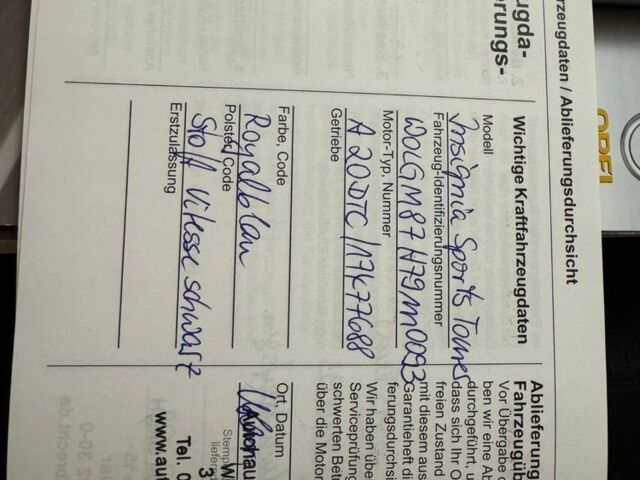 rzeugdaten / Ablieferungsdurchsicht
OPEL
ugda-
erungs-
Wichtige Kraftfahrzeugdaten
Modell
Insignia Sports Tourer
Fahrzeug-Identifizierungsnummer
Motor-Typ, Nummer
A 20DTC /
Getriebe
Farbe, Code
Royalblau
Polster, Code
Stoff Vitesse schwarz
Erstzulassung
Ablieferung
Fahrzeugüb
Vor Übergabe d
ben wir eine Ab
durchgeführt, u
dass sich Ihr O
freien Zustand
mit diesem aus
Garantieheft di
ferungsdurchsi
Wir haben übe
Serviceprüfung
schwerten Betr
über die Motor
Ort, Datum
Stemp
liefer
W
3
Tel. 0
www.au